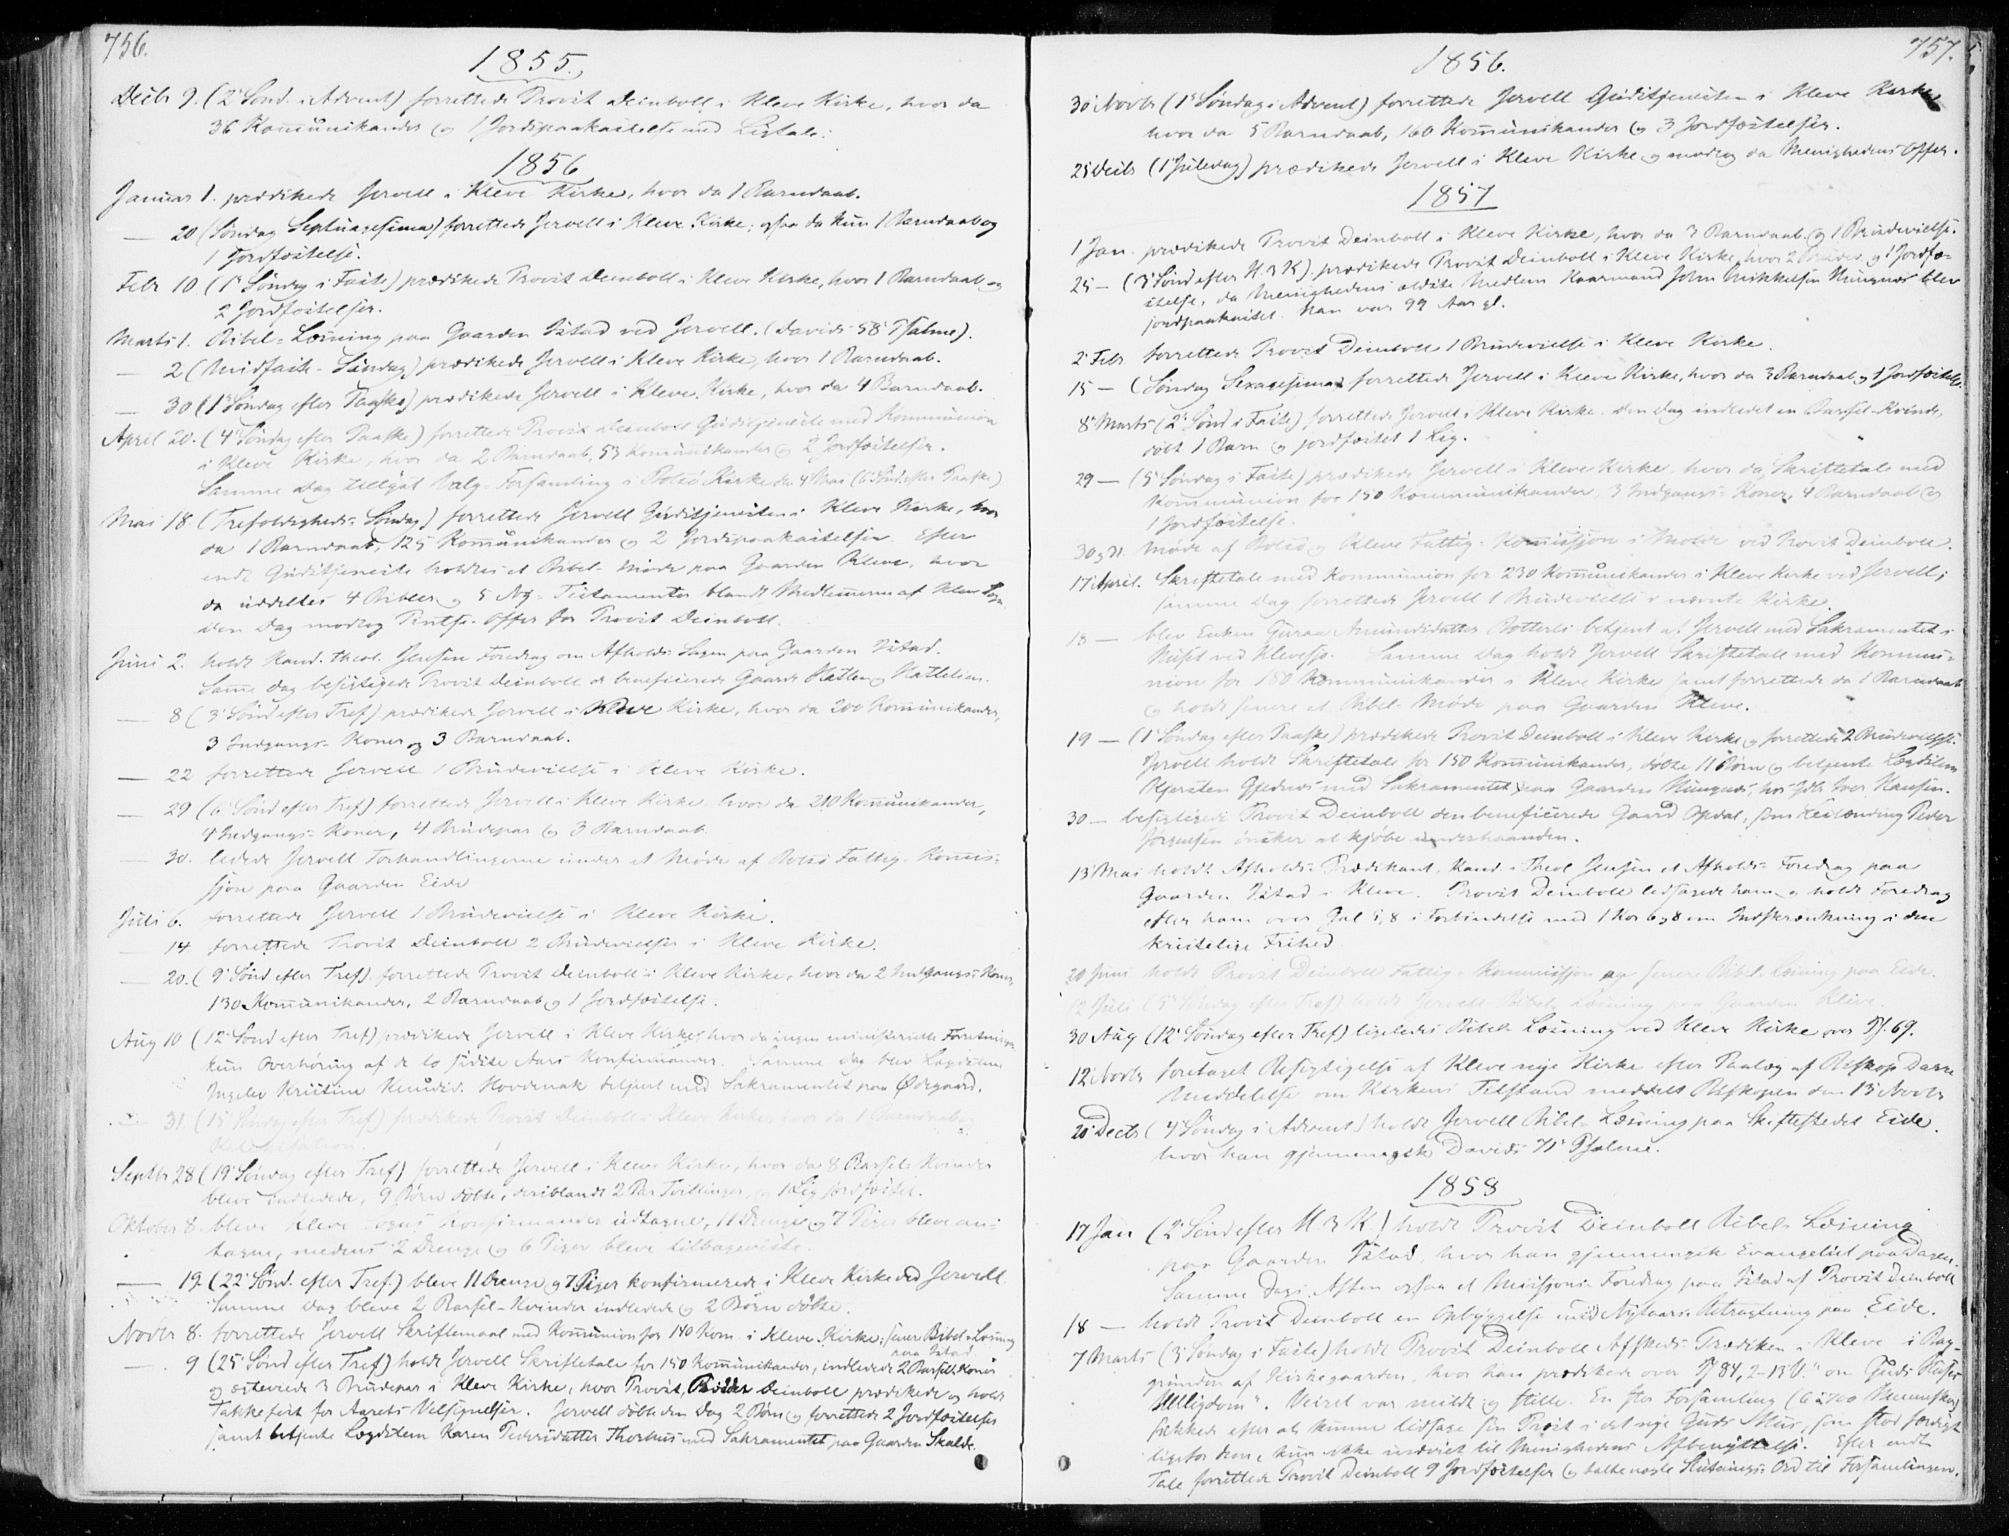 756.
1855.
Decbr 9. (2 Sönd. i Advent) forrettede Provst Deinboll i Kleve Kirke, hvor da
36 Kom̄unikander og 1 Jordspaakastelse med Ligtale.
1856
Januar 1. prædikede Jervell i Kleve Kirke, hvor da 1 Barndaab.
— 20 (Söndag Septuagesima) forrettede Jervell i Kleve Kirke; ogsaa da kun 1 Barndaab og
1 Jordfæstelse.
Febr 10 (1 Söndag i Faste) prædikede Provst Deinboll i Kleve Kirke, hvor 1 Barndaab og
2 Jordfæstelser.
Marts 1. Bibel-Læsning paa Gaarden Istad ved Jervell. (Davids 58 Psalme).
— 2 (Midfaste-Söndag) prædikede Jervell i Kleve Kirke, hvor 1 Barndaab.
— 30 (1 Söndag efter Paaske) prædikede Jervell i Kleve Kirke, hvor da 4 Barndaab.
April 20. (4 Söndag efter Paaske) forrettede Provst Deinboll Gudstjeneste med Kommunion
i Kleve Kirke, hvor da 2 Barndaab, 53 Kommunikander og 2 Jordfæstelser.
Samme Dag tillyst Valg-Forsamling i Bolsö Kirke den 4 Mai (6 Sönd. efter Paaske)
Mai 18 (Trefoldigheds-Söndag) forrettede Jervell Gudstjenesten i Kleve Kirke, hvor
da 1 Barndaab, 125 Kom̄unikander og 2 Jordspaakastelser. Efter
endt Gudstjeneste holdtes et Bibel-Möde paa Gaarden Kleve, hvor
da uddeltes 4 Bibler og 5 Ny-Testamenter blandt Medlemmerne af Kleve Sogn
den Dag modtog Pintse-Offer for Provst Deinboll.
Juni 2. holdt Kand. theol. Jensen Foredrag om Afholds-Sagen paa Gaarden Istad.
Samme Dag besigtigede Provst Deinboll de beneficerede Gaarde Hatlen og Hatlelien.
— 8 (3 Sönd efter Tref) prædikede Jervell i Kleve Kirke, hvor da 200 Kommunikander,
3 Indgangs-Koner og 3 Barndaab.
— 22 forrettede Jervell 1 Brudevielse i Kleve Kirke.
— 29 (6 Sönd efter Tref) forrettede Jervell i Kleve Kirke hvor da 210 Kom̄unikander,
4 Indgangs-Koner, 4 Brudepar og 3 Barndaab.
— 30. ledede Jervell Forhandlingerne under et Möde af Bolsö Fattig-Kommis-
sjon paa Gaarden Eide
Juli 6. forrettede Jervell 1 Brudevielse i Kleve Kirke.
— 14 forrettede Provst Deinboll 2 Brudevielser i Kleve Kirke.
— 20. (9 Sönd efter Tref) forrettede Provst Deinboll i Kleve Kirke, hvor da 2 Indgangs-Koner,
130 Kom̄unikander, 2 Barndaab og 1 Jordfæstelse.
Aug 10 (12 Sönd efter Tref) prædikede Jervell i Kleve Kirke, hvor da ingen ministerielle Forretninger
kun Overhöring af de to sidste Aars Konfirmander. Samme Dag blev Lægdslem
Ingeleb Kristine Knudsd. Hovdenak betjent med Sakramentet paa Ødegaard.
— 31. (15 Söndag efter Tref) prædikede Provst Deinboll i Kleve Kirke, hvor da 1 Barndaab og
Septbr 28 (19 Söndag efter Tref) forrettede Jervell i Kleve Kirke, hvor da 8 Barsel-Kvinder
bleve indledede, 9 Börn döbte, deriblandt 2 Par Tvillinger, og 1 Lig jordfæstet.
Oktober 8. bleve Kleve Sogns Konfirmander udtagne, 11 Drenge og 7 Piger bleve an-
tagne, medens 2 Drenge og 6 Piger bleve tilbageviste.
— 19. (22 Sönd. efter Tref) bleve 11 Drenge og 7 Piger konfirmerede i Kleve Kirke ved Jervell
Samme Dag bleve 2 Barsel-Kvinder indledede og 2 Börn döbte.
Novbr 8. forrettede Jervell Skriftemaal med Kommunion for 140 Kom. i Kleve Kirke; senere Bibel-Læsning
paa Istad.
— 9 (25 Sönd efter Tref) holdt Jervell Skriftetale for 150 Kommunikander, indledede 2 Barsel-Koner
og ægteviede 3 Brudepar i Kleve Kirke, hvor Provst Deinboll prædikede og holdt
Takkefest for Aarets Velsignelser. Jervell döbte den Dag 2 Börn og forrettede 2 Jordfæstelser
samt betjente Lægdslem Karen Pedersdatter Thorhus med Sakramentet paa Gaarden Skalde.
757.
1856.
30 Novbr (1 Söndag i Advent) forrettede Jervell Gudstjenesten i Kleve Kirke
hvor da 5 Barndaab, 160 Kom̄unikander og 3 Jordfæstelser.
25 Decbr (1 Juledag) prædikede Jervell i Kleve Kirke og modtog da Menighedens Offer.
1857
1 Jan. prædikede Provst Deinboll i Kleve Kirke, hvor da 3 Barndaab og 1 Brudevielse.
25 — (3 Sönd efter H. 3 K.) prædikede Provst Deinboll i Kleve Kirke, hvor 2 og 1 Jordfæ-
stelse, da Menighedens ældste Medlem Kaarmand John Mikkelsen Hungnes blev
jordpaakastet. Han var 99 Aar gl.
2 Febr forrettede Provst Deinboll 1 Brudevielse i Kleve Kirke.
15 — (Söndag Sexagesima) forrettede Jervell i Kleve Kirke, hvor da 3 Barndaab og 1 Jordfæstelse.
8 Marts (2 Sönd i Faste) forrettede Jervell i Kleve Kirke. Den Dag indledet en Barsel-Kvinde,
döbt 1 Barn og jordfæstet 1 Lig.
29 — (5 Söndag i Faste) prædikede Jervell i Kleve Kirke, hvor da Skriftetale med
Kommunion for 150 Kommunikander, 3 Indgangs-Koner, 4 Barndaab og
1 Jordfæstelse.
30 og 31. Möde af Bolsö og Kleve Fattig-Kommissjon i Molde ved Provst Deinboll.
17 April. Skriftetale med Kommunion for 230 Kom̄unikander i Kleve Kirke ved Jervell;
samme Dag forrettede Jervell 1 Brudevielse i nævnte Kirke.
18 — blev Enken Guraa Amundsdatter Botterli betjent af Jervell med Sakramentet i
Huset ved Kleve. Samme Dag holdt Jervell Skriftetale med Kommu-
nion for 180 Kommunikander i Kleve Kirke samt forrettede da 1 Barndaab
og holdt senere et Bibel-Möde paa Gaarden Kleve.
19 — (1 Söndag efter Paaske) prædikede Provst Deinboll i Kleve Kirke og forrettede 2 Brudevielser.
Jervell holdt Skriftetale for 150 Kommunikander, döbte 11 Börn og betjente Lægdslem
Gjednæs med Sakramentet paa Gaarden Hungnes, hos Gdb. Iver Hansen.
30 — besigtigede Provst Deinboll den beneficerede Gaard Opdal, som Leilænding Peder
Jörgensen önsker at kjöbe underhaanden.
13 Mai holdt Afholds-Prædikant, Kand. Theol Jensen et Afholds-Foredrag paa
Gaarden Istad i Kleve. Provst Deinboll ledsagede ham og holdt Foredrag
efter ham over Gal 1,8 i Forbindelse med 1 Kor 6 og 8 om Indskrænkning i den
kristelige Frihed
20 Juni holdt Provst Deinboll Fattig-Kommissjon og senere Bibel-Læsning paa Eide.
12 Juli (5 Söndag efter Tref) holdt Jervell Bibel-Læsning paa Gaarden Kleve.
30 Aug (12 Söndag efter Tref) ligeledes Bibel-Læsning ved Kleve Kirke over Ps. 69.
12 Novbr foretaget Besigtigelse af Kleve nye Kirke efter Paalæg af Biskop Darre
Meddelelse om Kirkens Tilstand meddelt Biskopen den 13 Novbr
20 Decbr (4 Söndag i Advent) holdt Jervell Bibel-Læsning paa Skiftestedet Eide.
hvor han gjennemgik Davids 71 Psalme.
1858
17 Jan (2 Sönd efter H 3 K.) holdt Provst Deinboll Bibel-Læsning
paa Gaarden Istad, hvor han gjennemgik Evangeliet paa Dagen.
Samme Dags Aften ogsaa et Missjons-Foredrag paa Istad af Provst Deinboll
18 — holdt Provst Deinboll en Opbyggelse med Nytaars-Betragtning paa Eide.
7 Marts (3 Söndag i Faste) holdt Provst Deinboll Affskeds-Prædiken i Kleve i Bag-
grunden af Kirkegaarden, hvor han prædikede over Ps 84, 2-13 V. "om Guds Huses
Helligdom". Veiret var mildt og stille. En stor Forsamling (6 à 700 Mennesker)
sukkede efter at kunne ledsage sin Provst i det nye Guds Hus, som stod færdigt
ligefor dem, kun ikke indviet til Menighedens Afbenyttelse. Efter endt
Tale forrettede Provst Deinboll 9 Jordfæstelser og talte nogle Slutnings-Ord til Forsamlingen.